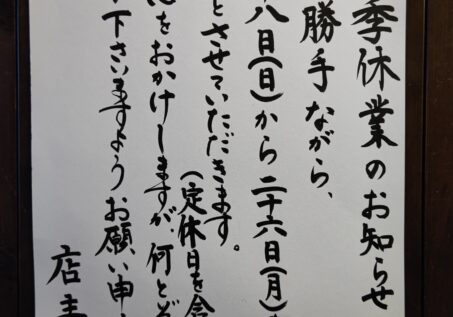 季休業のお知らせ
勝手ながら、
八日(日)から二十六日(月)
とさせていただきます。
(定休日を含
をおかけしますが何とぞ
下さいますようお願い申
店主